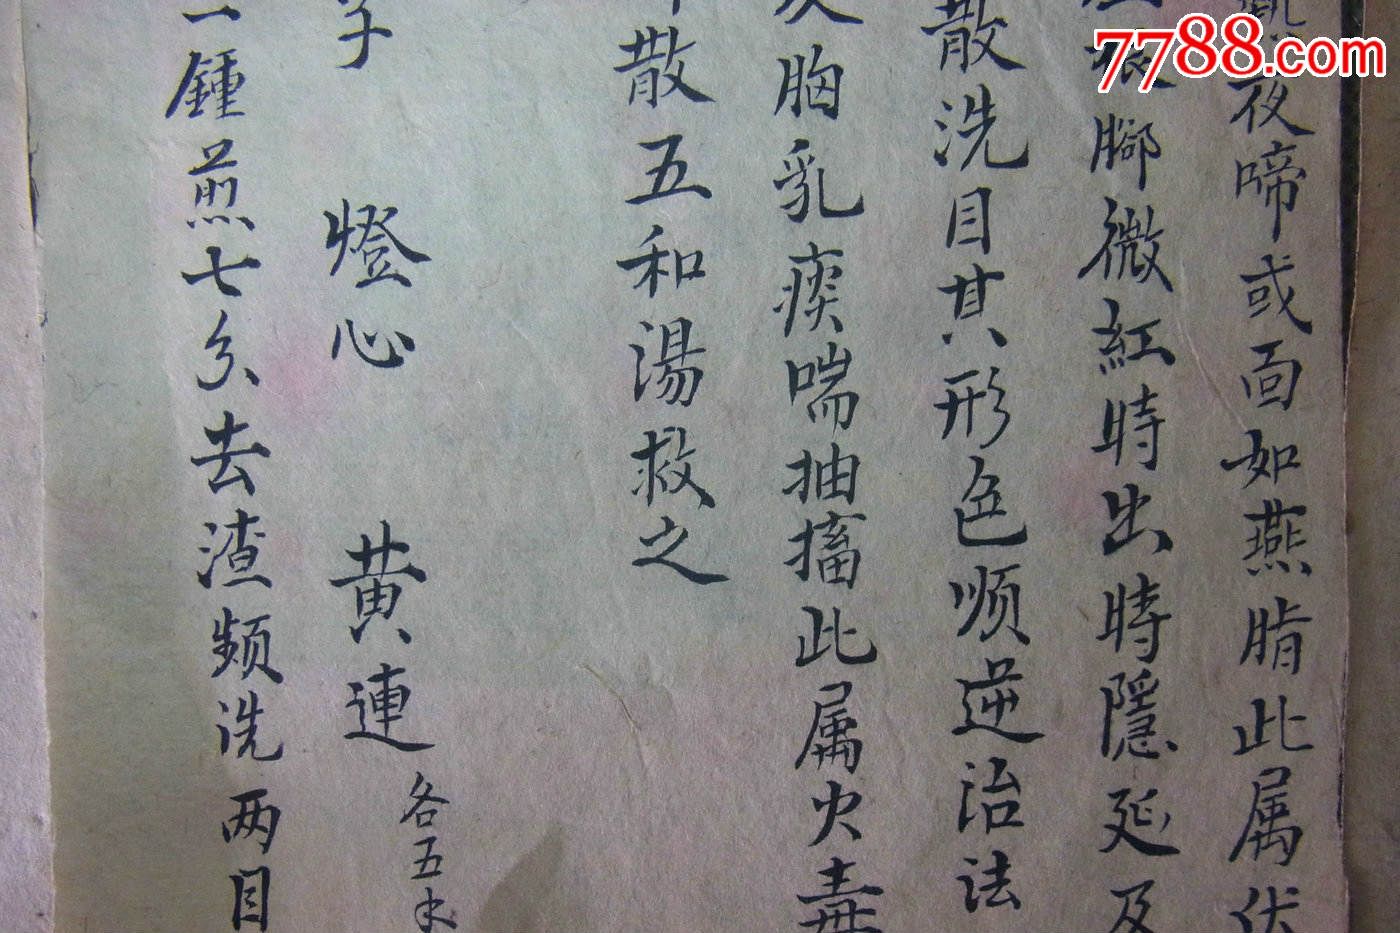 7788.com
夜啼或面如燕脂此属伏
根腳微紅時出時隱延及
散洗目其形色顺逆治法
及胸乳痰喘抽搐此属火毒
散五和湯救之
子 燈心 黄連 各五
一鍾煎七分去渣频洗两目